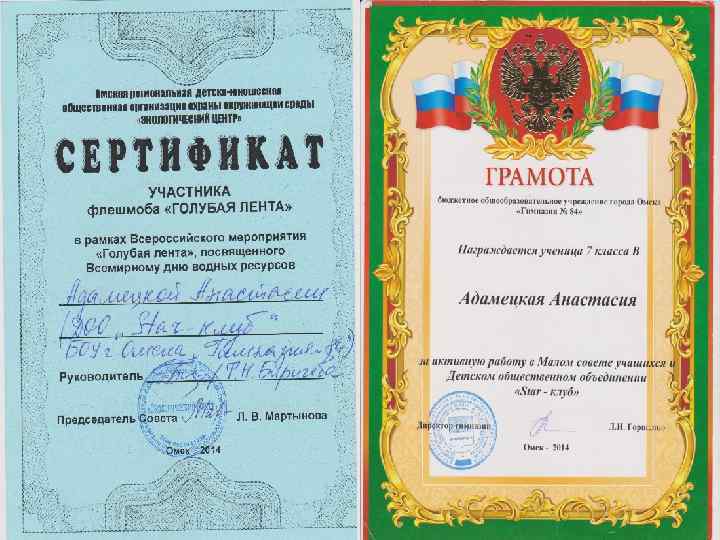 Омская региональная детско-юношеская
общественная организация охраны окружающей среды
«ЭКОЛОГИЧЕСКИЙ ЦЕНТР»
СЕРТИФИКАТ
УЧАСТНИКА
флешмоба «ГОЛУБАЯ ЛЕНТА»
в рамках Всероссийского мероприятия
«Голубая лента», посвященного
Всемирному дню водных ресурсов
Адамецкой Анастасии
ДОО „Star-клуб“
БОУ г Омска „Гимназия 84)
Руководитель Т.Н.
Председатель Совета Л. В. Мартынова
Омск 2014
ГРАМОТА
бюджетное общеобразовательное учреждение города Омска
«Гимназия № 84»
Награждается ученица 7 класса В
Адамецкая Анастасия
за активную работу в Малом совете учащихся и
Детском общественном объединении
«Star - клуб»
Директор гимназии Л.Н.
Омск - 2014